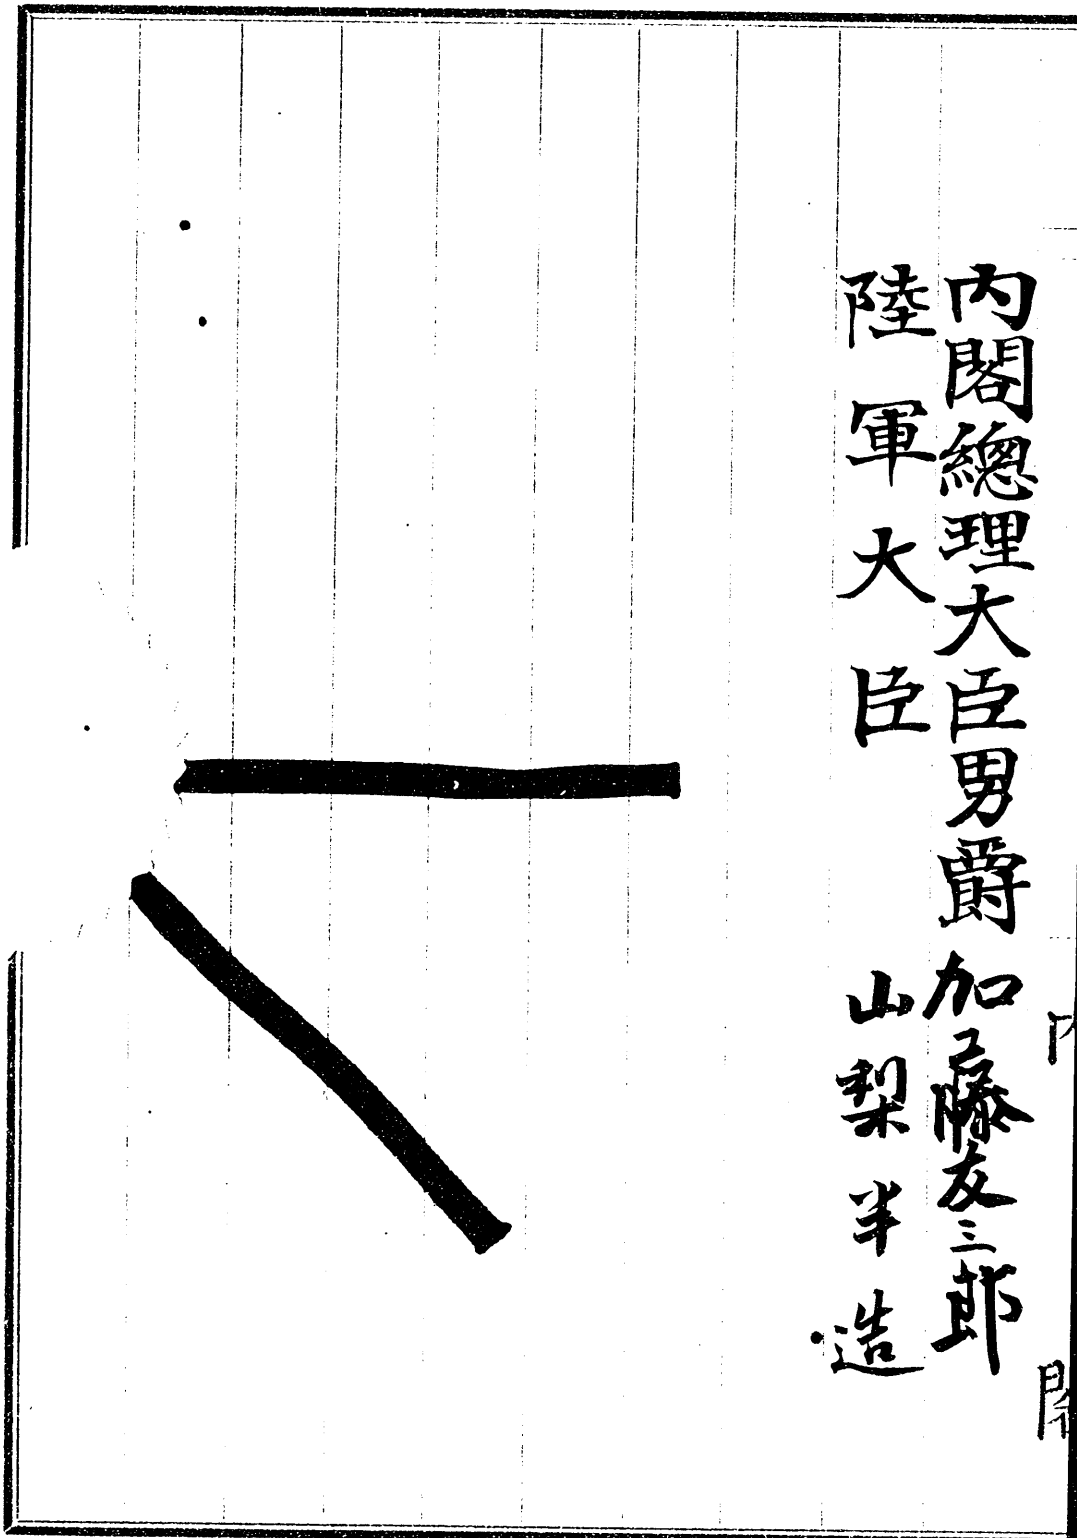 內閣總理大臣男爵 加藤友三郎
陸軍大臣 山梨半造
內閣